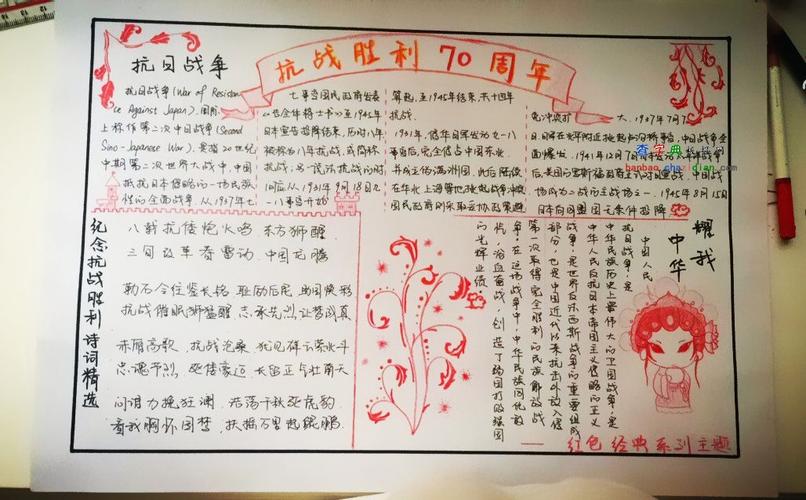 抗战胜利70周年
抗日战争
抗日战争(War of Resistan-
ce Against Japan),国际
上称作第二次中国战争(Second
Sino-Japanese War),是指20世纪
中期第二次世界大战中,中国
抵抗日本侵略的一场民族
性的全面战争,从1937年七
七事
以至1945年
日本宣告投降结束,历时八年
被称为八年抗战,或简称
抗战;另一说法抗战的时
间应从1931年9月18日九
一八事变开始
算起,至1945年结束,共十四年
抗战。
1931年,侵华日军发动九一八
事变后,完全侵占中国东北,
并成立伪满洲国,此后陆续
在华北、上海等地挑起战争冲突
国民政府则采取妥协政策避
免冲突扩
大。1937年7月7
日,日军在北平附近挑起卢沟桥事变,中国战争全
面爆发。1941年12月7日
后,美国
场成为二战的主战场之一。1945年8月15日
日本向同盟国无条件投降
查字典
手抄报网
hanbao.chazidian.com
纪念抗战胜利诗词精选
八载抗倭炮火鸣 东方狮醒
三旬改革春雷动 中国龙腾
勒石今任鉴长铭 耻励后昆
抗战催眠狮猛醒 志承先烈 让梦成真
赤眉高歌,抗战
忠魂节烈
问谁力挽狂澜
看我胸怀国梦,扶摇万里起鲲鹏
耀我
中华
中国人民
抗日战争,是
中华民族历史上最伟大的卫国战争,是
中华人民反抗日本帝国主义侵略的正义
战争,是世界反法西斯战争的重要组成
部分,也是中国近代以来抗击外敌入侵
第一次取得完全胜利的民族解放战
争。在这场战争中,中华民族同仇敌
忾,浴血奋战,创造了弱国打败强国
的光辉业绩。
——红色经典系列主题